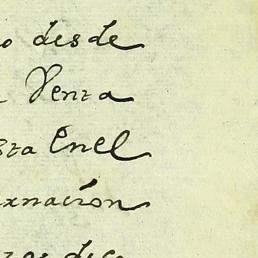 o desde
Venta
sta Enel
rnacion